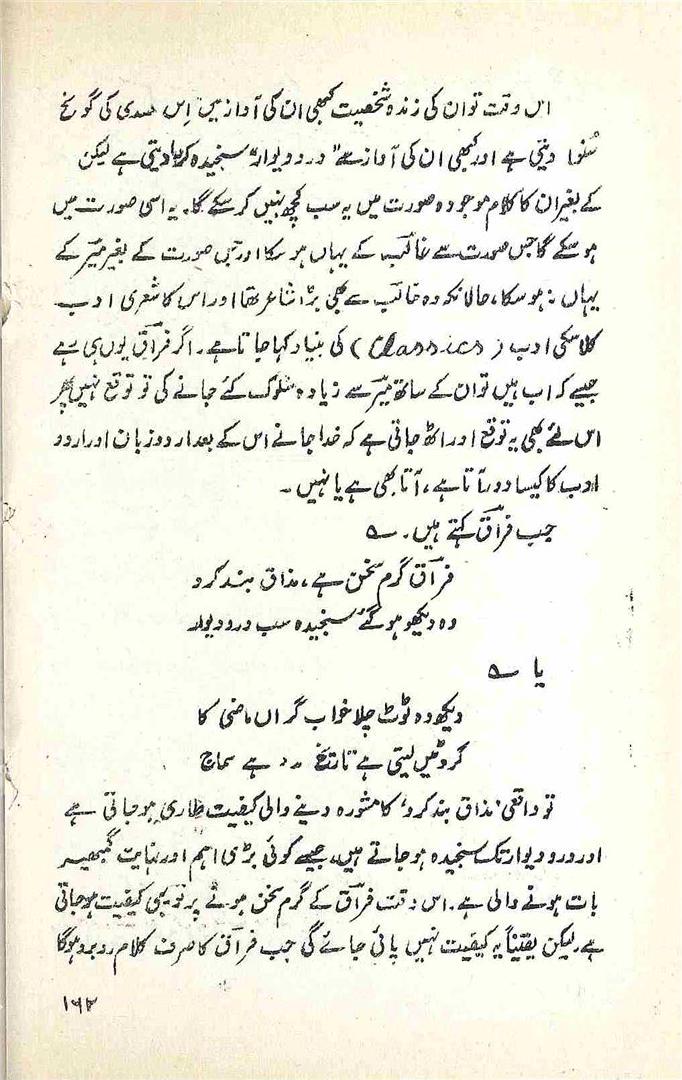 اس وقت تو ان کی زندہ شخصیت کبھی ان کی آواز میں اِس صدی کی گونج
سُنوا دیتی ہے اور کبھی ان کی آواز سے "در و دیوار" سنجیدہ کرا دیتی ہے لیکن
کے بغیر ان کا کلام موجودہ صورت میں یہ سب کچھ نہیں کر سکے گا۔ یہ اسی صورت میں
ہو سکے گا جس صورت سے غالبؔ کے یہاں ہو سکا اور جس صورت کے بغیر میرؔ کے
یہاں نہ ہو سکا، حالانکہ وہ غالب سے بھی بڑا شاعر تھا اور اس کا شعری ادب
کلاسکی ادب (Classics) کی بنیاد کہا جاتا ہے۔ اگر فراقؔ یوں ہی رہے
جیسے کہ اب ہیں تو ان کے ساتھ میرؔ سے زیادہ سلوک کئے جانے کی تو توقع نہیں پھر
اس لئے بھی یہ توقع اور اٹھ جاتی ہے کہ خدا جانے اس کے بعد اردو زبان اور اردو
ادب کا کیسا دور آتا ہے، آتا بھی ہے یا نہیں۔
جب فراقؔ کہتے ہیں۔ ؎
فراقؔ گرم سخن ہے، مذاق بند کرو
وہ دیکھو ہو گئے سنجیدہ سب در و دیوار
یا ؎
دیکھو وہ ٹوٹ چلا خواب گراں ماضی کا
کروٹیں لیتی ہے تاریخ ہے سماج
تو واقعی 'مذاق بند کرو' کا مشورہ دینے والی کیفیت طاری ہو جاتی ہے
اور در و دیوار تک سنجیدہ ہو جاتے ہیں، جیسے کوئی بڑی اہم اور نہایت گمبھیر
بات ہونے والی ہے۔ اس وقت فراقؔ کے گرم سخن ہونے پر تو یہی کیفیت ہو جاتی
ہے۔ لیکن یقیناً یہ کیفیت نہیں پائی جائے گی جب فراقؔ کا صرف کلام روبرو ہوگا
۱۶۲